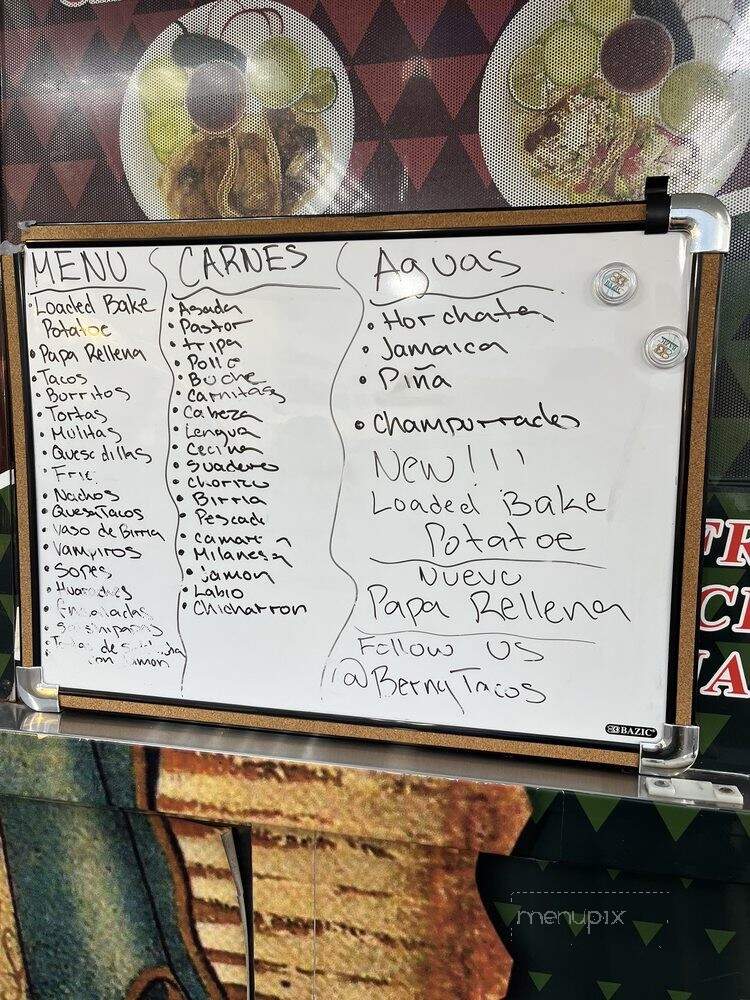 MENU
• Loaded Bake
Potatoe
• Papa Rellena
• Tacos
• Burritos
• Tortas
• Mulitas
• Quesadillas
• Frie
• Nachos
• QuesaTacos
• Vaso de Birria
• Vampiros
• Sopes
• Huaraches
• Ensaladas
• Salshipapas
• Tortas de
con Jamon
CARNES
• Asada
• Pastor
• tripa
• Pollo
• Buche
• Carnitas
• Cabeza
• Lengua
• Cecina
• Suadero
• Chorizo
• Birria
• Pescado
• Camaron
• Milanesa
• Jamon
• Labio
• Chicharron
Aguas
• Horchata
• Jamaica
• Piña
• Champurrado
New!!!
Loaded Bake
Potatoe
Nuevo
Papa Rellena
Follow US
@BernyTacos
BAZIC
menupix